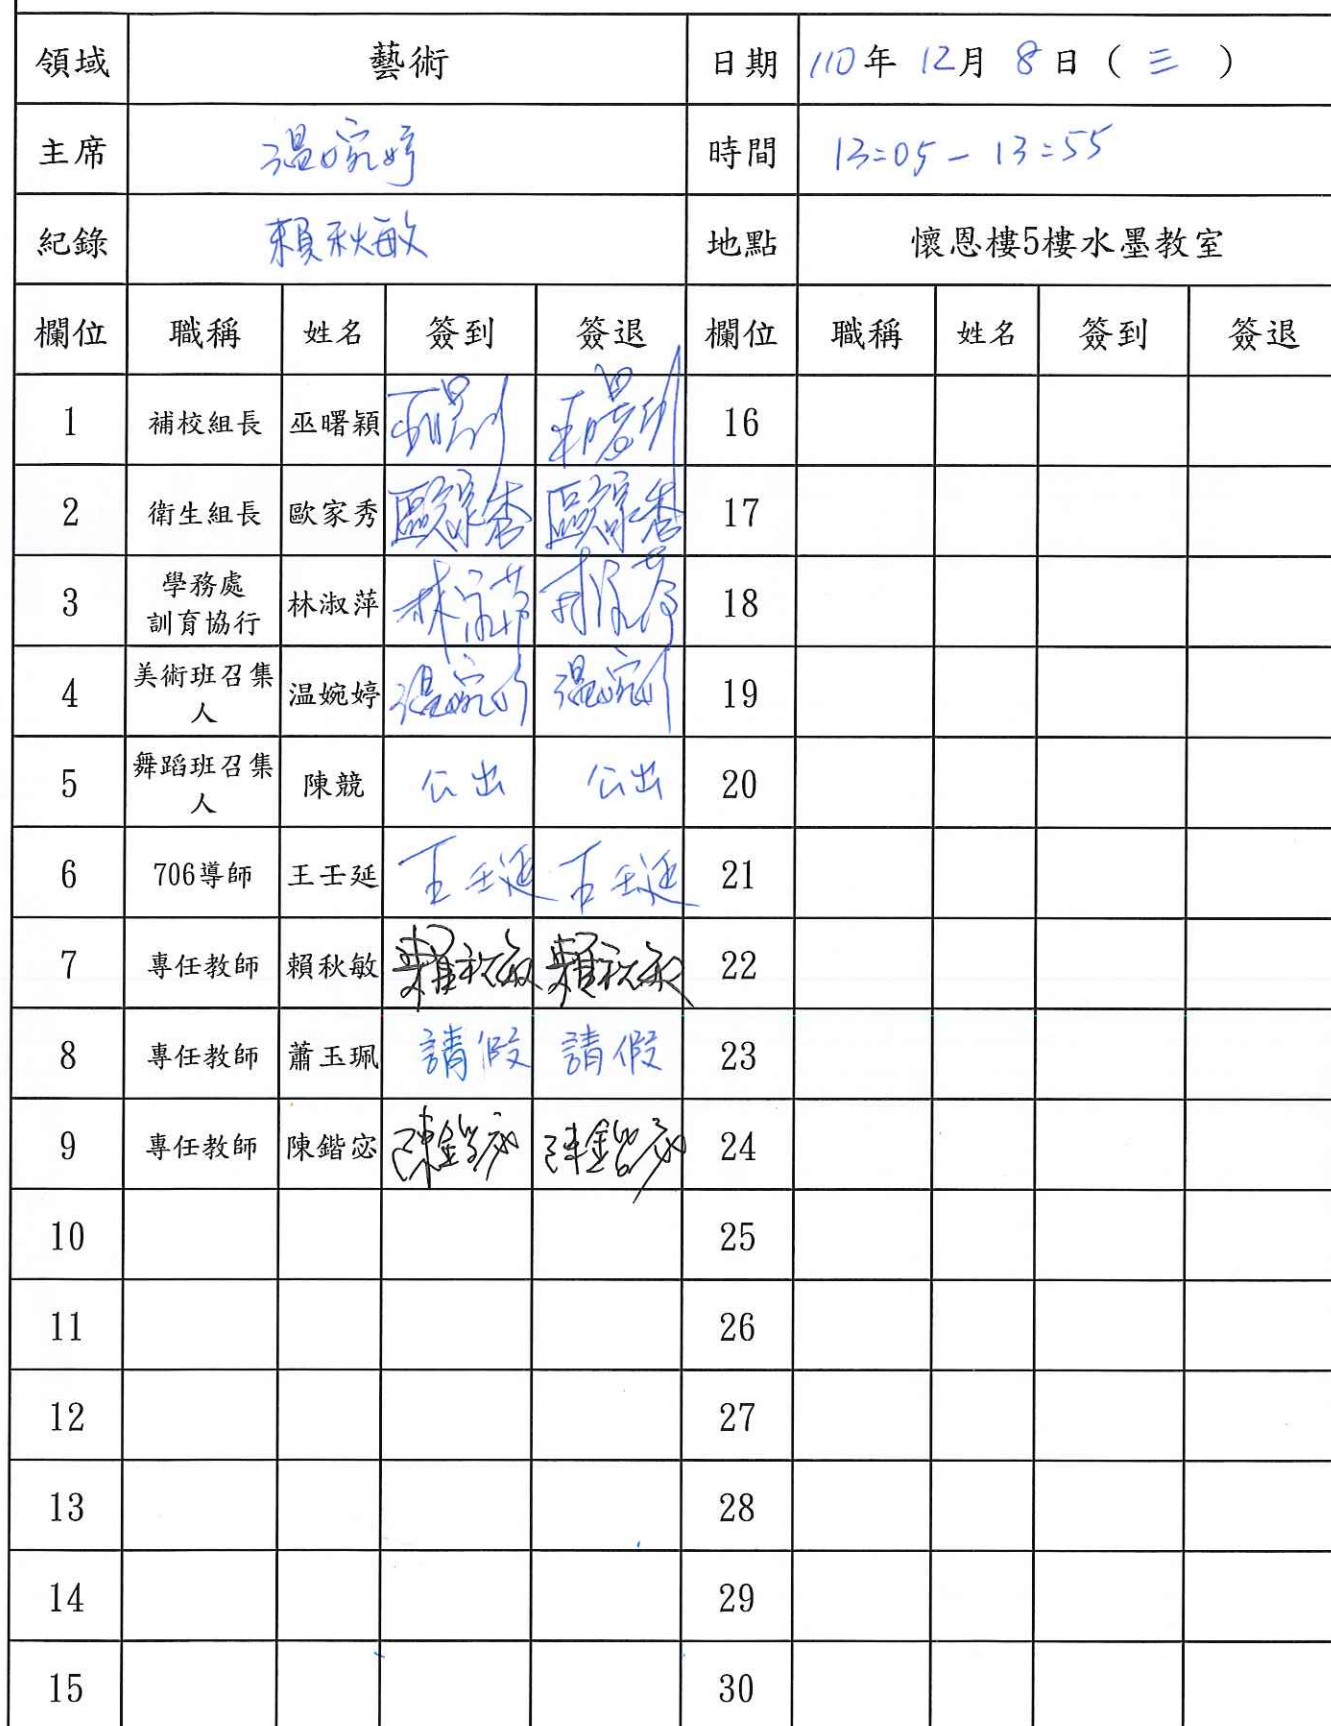 領域 藝術 日期 110年 12月 8日 ( 三 )
主席 温婉婷 時間 13:05 - 13:55
紀錄 賴秋敏 地點 懷恩樓5樓水墨教室
欄位 職稱 姓名 簽到 簽退 欄位 職稱 姓名 簽到 簽退
1 補校組長 巫曙穎 16
2 衛生組長 歐家秀 歐家秀 歐家秀 17
3 學務處
訓育協行 林淑萍 林淑萍 林淑萍 18
4 美術班召集
人 温婉婷 温婉婷 温婉婷 19
5 舞蹈班召集
人 陳競 公出 公出 20
6 706導師 王壬延 王壬延 王壬延 21
7 專任教師 賴秋敏 賴秋敏 賴秋敏 22
8 專任教師 蕭玉珮 請假 請假 23
9 專任教師 陳鍇宓 陳鍇宓 陳鍇宓 24
10 25
11 26
12 27
13 28
14 29
15 30